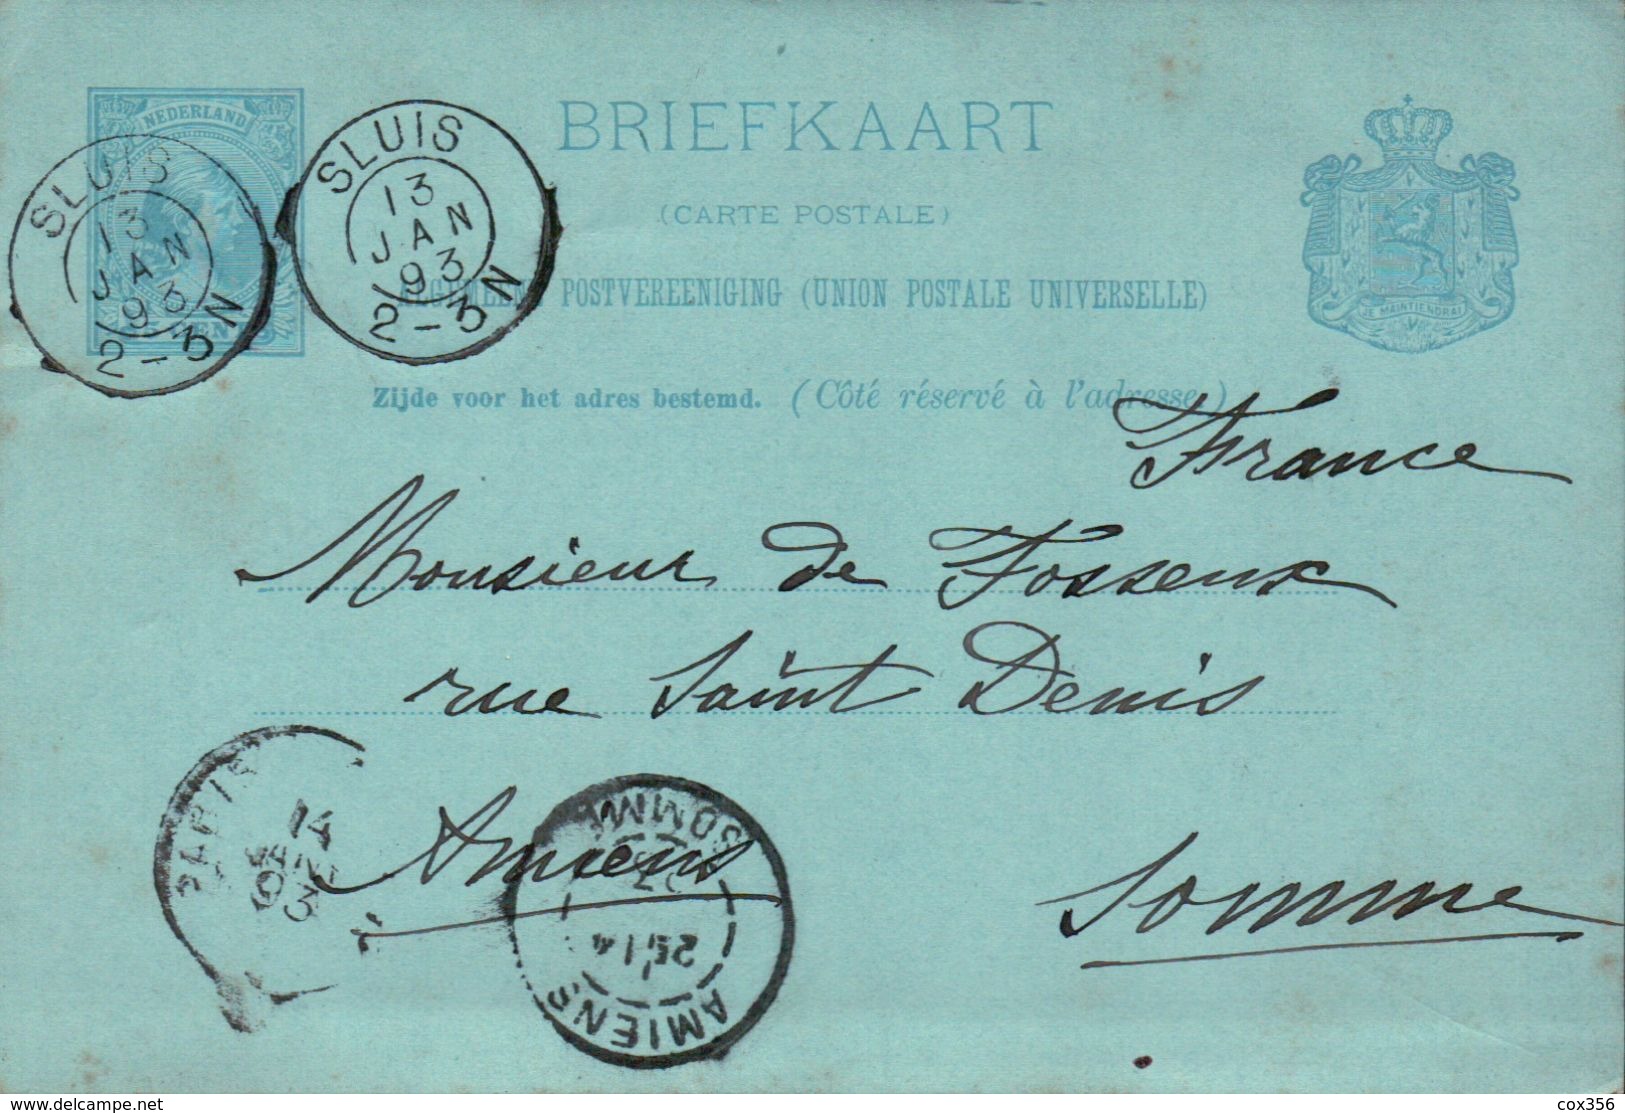 NEDERLAND
BRIEFKAART
(CARTE POSTALE)
POSTVEREENIGING (UNION POSTALE UNIVERSELLE)
JE MAINTIENDRAI
Zijde voor het adres bestemd. (Côté réservé à l'adresse.)
SLUIS
13
JAN
93
2-3N
SLUIS
13
JAN
93
2-3N
France
Monsieur de Fosseux
rue Saint Denis
Amiens
Somme
PARIS
14
JAN
93
AMIENS
SOMME
delcampe.net
cox356